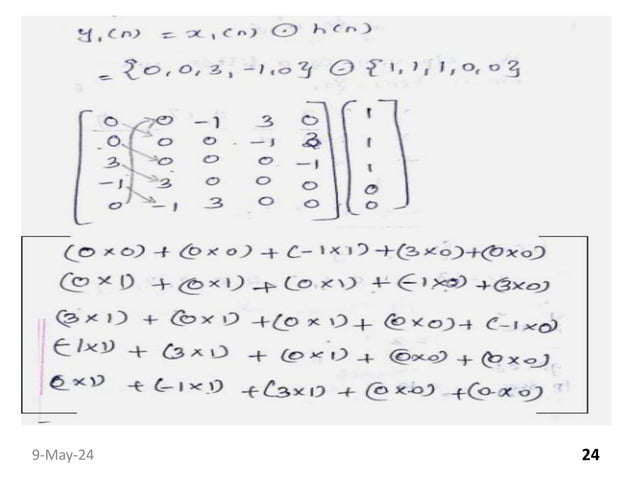 y₁(n) = x₁(n) ⊙ h(n)
= {0, 0, 3, -1, 0} ⊙ {1, 1, 1, 0, 0}
0 0 -1 3 0 1
0 0 0 -1 3 1
3 0 0 0 -1 1
-1 3 0 0 0 0
0 -1 3 0 0 0
(0×0) + (0×0) + (-1×1) + (3×0) + (0×0)
(0×1) + (0×1) + (0×1) + (-1×0) + (3×0)
(3×1) + (0×1) + (0×1) + (0×0) + (-1×0)
(-1×1) + (3×1) + (0×1) + (0×0) + (0×0)
(0×1) + (-1×1) + (3×1) + (0×0) + (0×0)
9-May-24
24